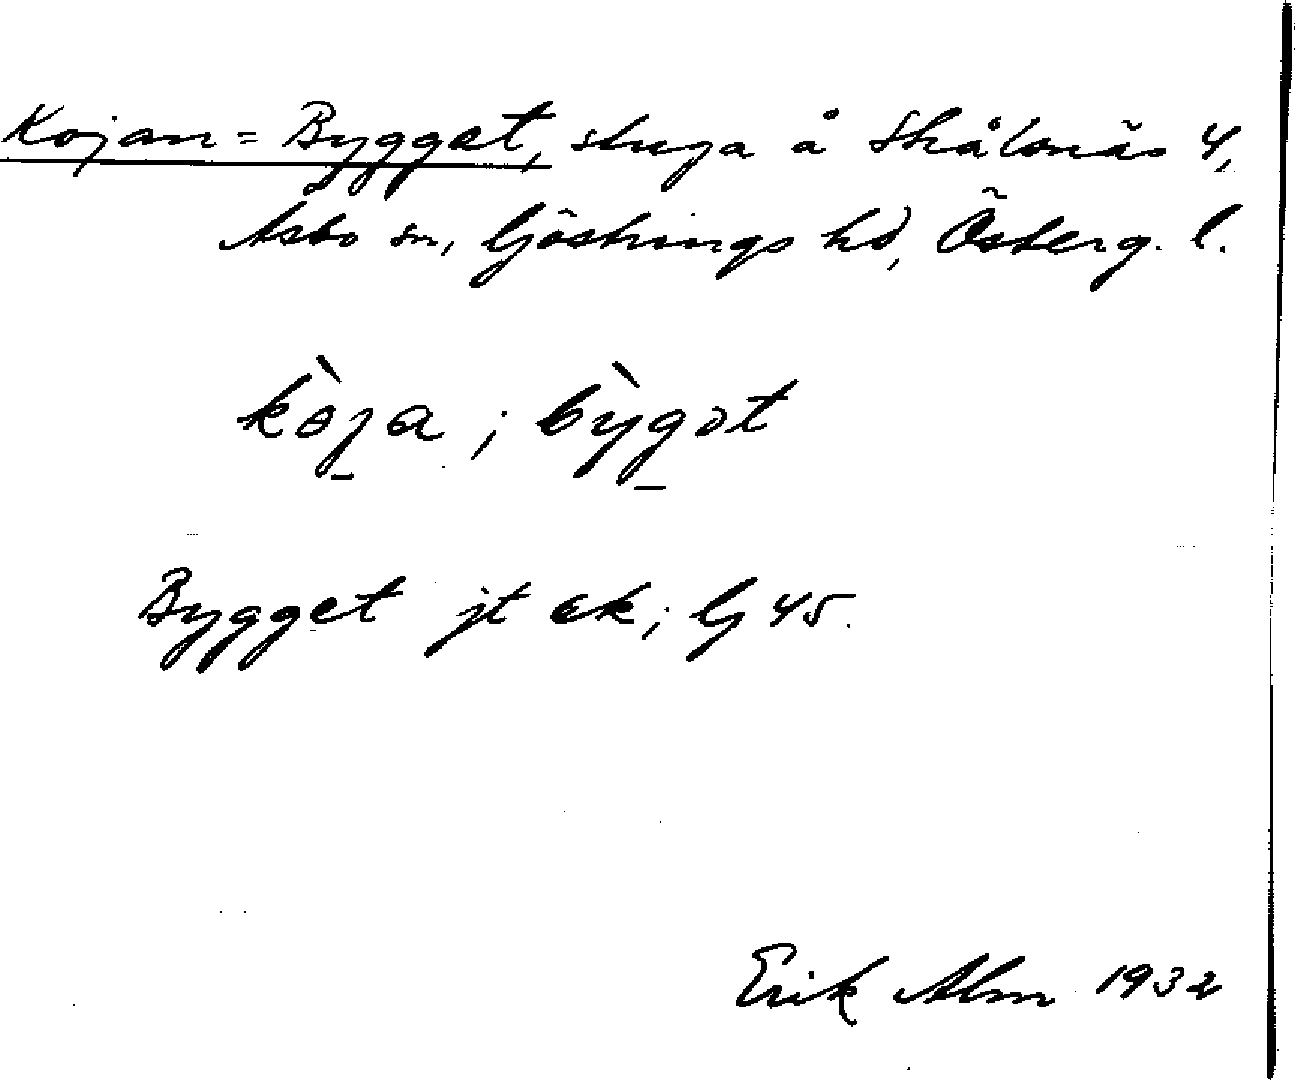 Kojan = Bygget, stuga å Skålsnäs 4,
Åsbo sn, Göstrings hd, Österg. l.
kòja ; bỳgət
Bygget jt ek; G 45.
Erik Alm 1932